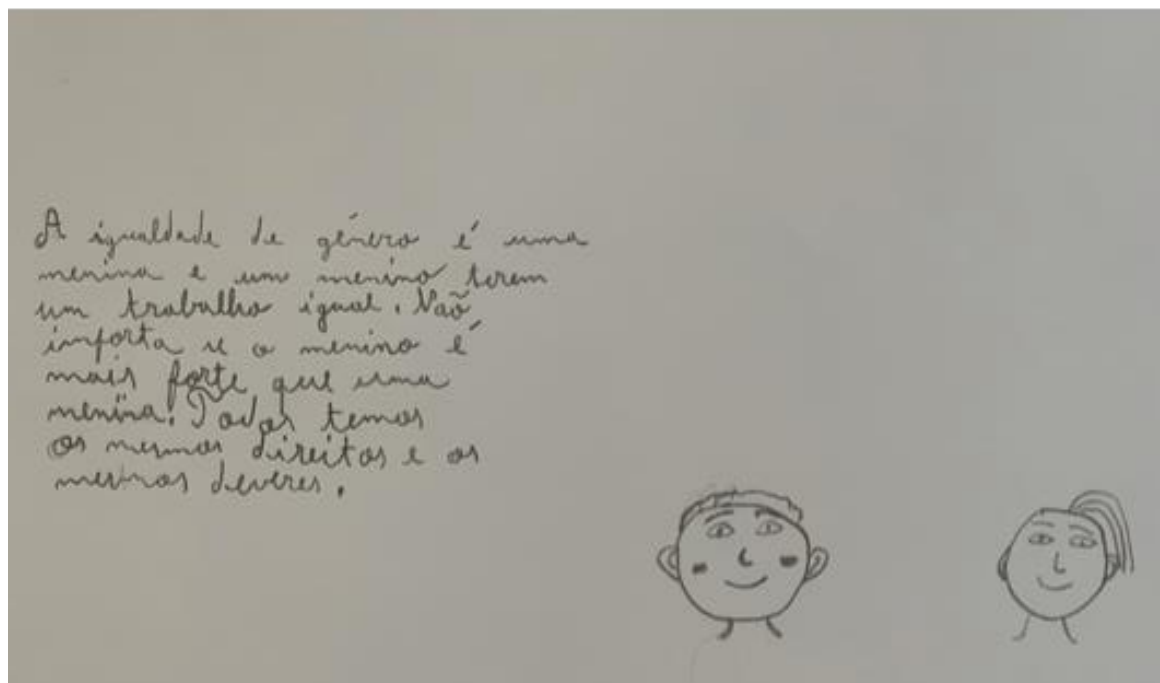 A igualdade de género é uma
menina e um menino terem
um trabalho igual. Não
importa se o menino é
mais forte que uma
menina. Todos temos
os mesmos direitos e os
mesmos deveres.